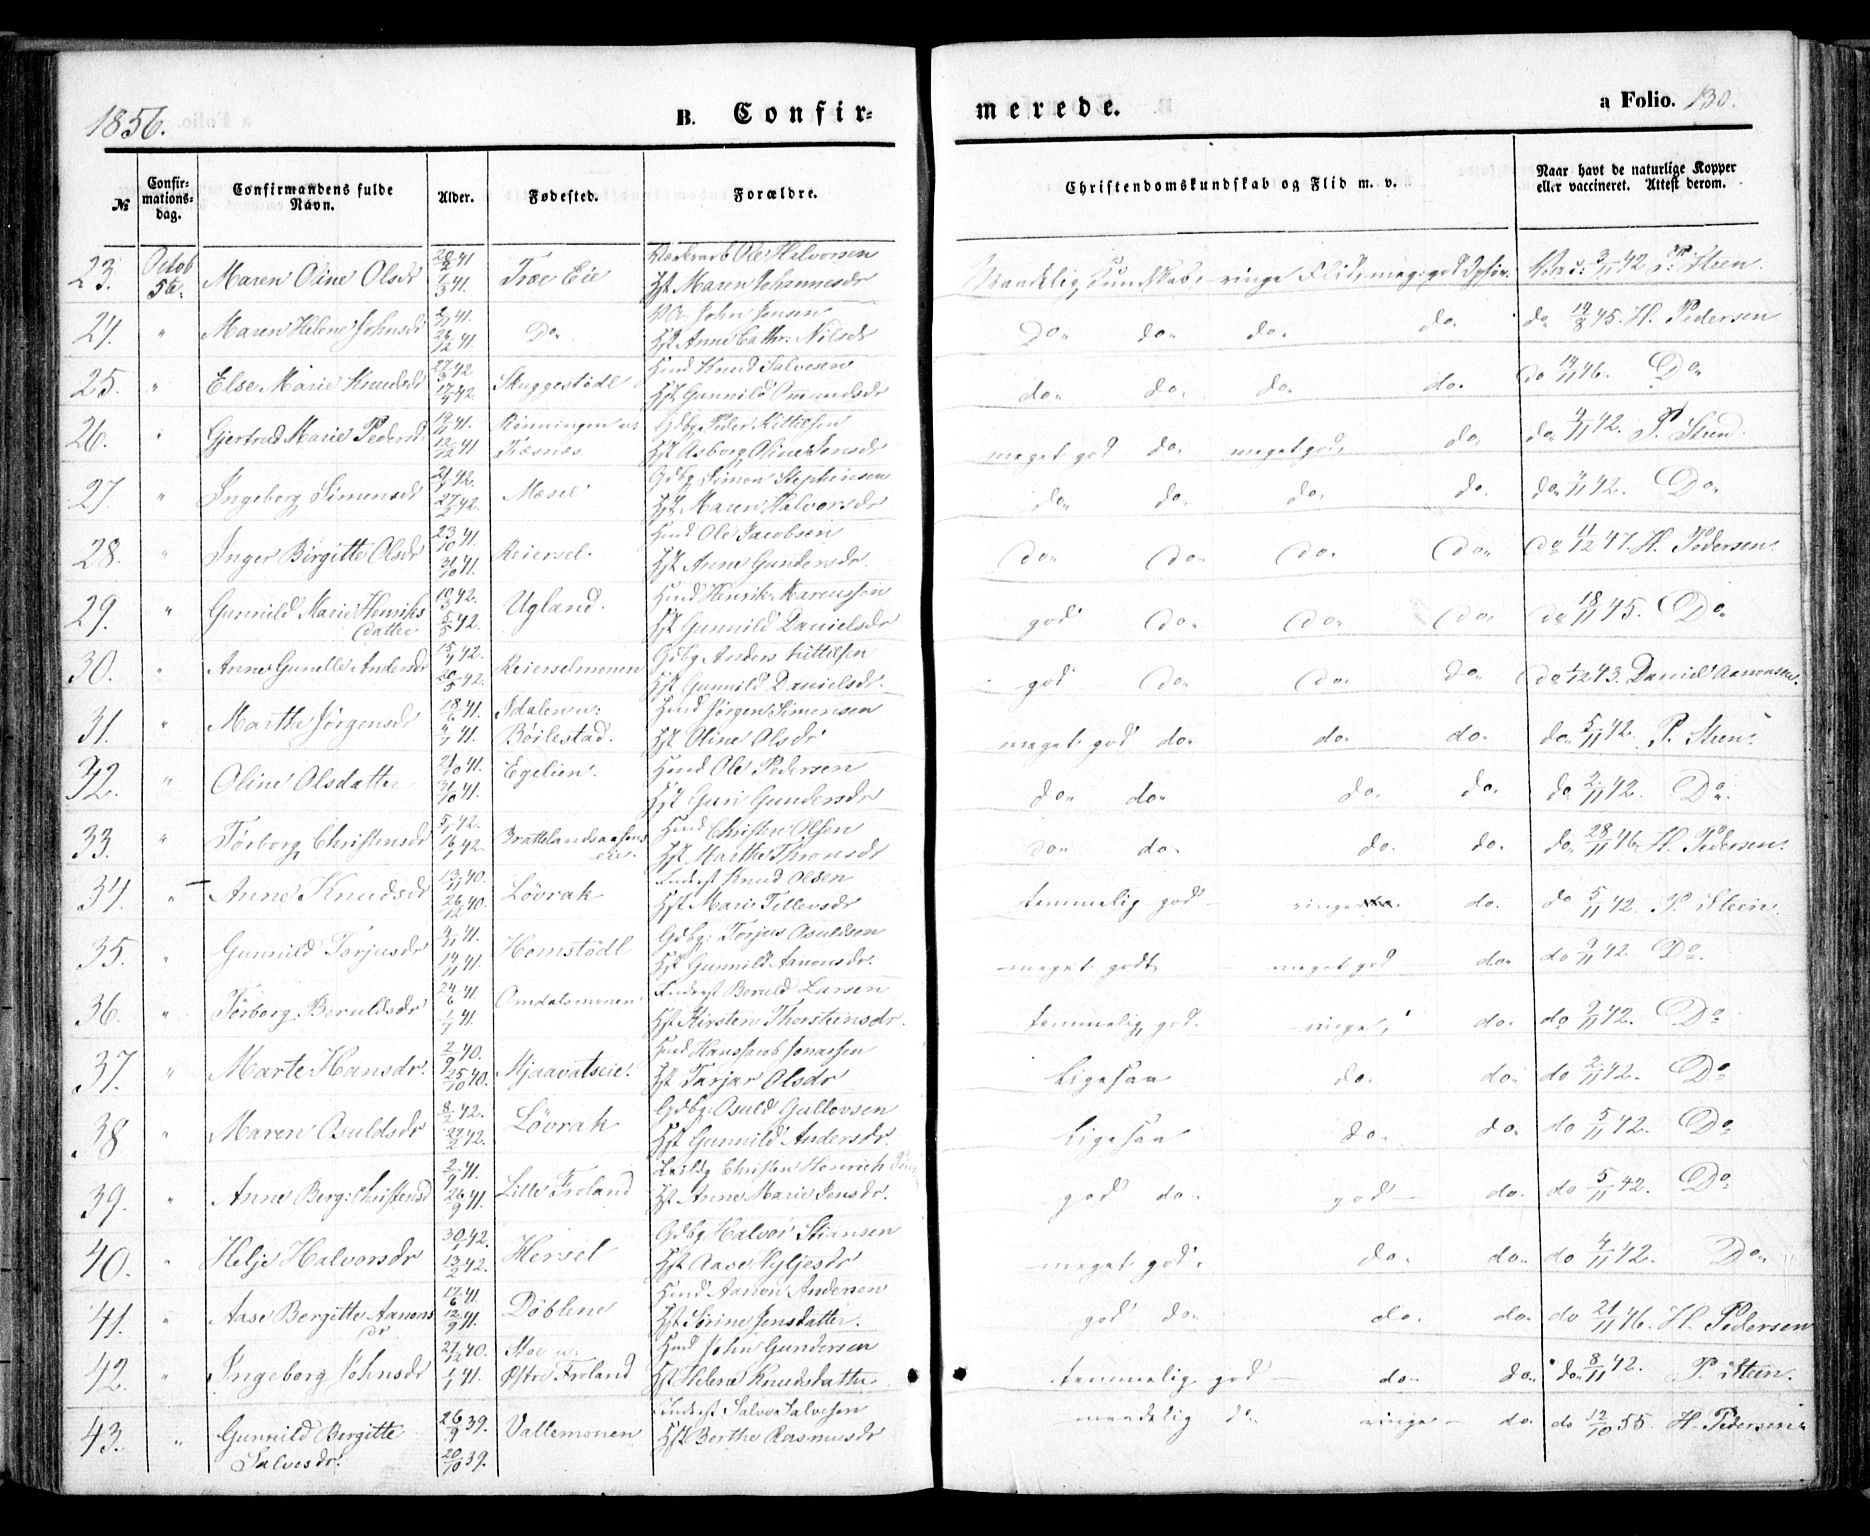 1856.
B. Confir-
merede.
a Folio. 130.
№
Confir-
mations-
dag.
Confirmandens fulde
Navn.
Alder.
Fødested.
Forældre.
Christendomskundskab og Flid m. v.
Naar havt de naturlige Kopper
eller vaccineret. Attest derom.
23. Octob 5te. Maren Oline Olsdr 1/3 41. Træe Eie Ole Halvorsen
Hst Maren Johannesdr ringe Flid, 3/11 42 P. Steen.
24. " Maren Helene Johnsdr 26/12 41. Do John Jensen
Hst Anne Cathr: Nilsdr Do do do do. do 19/8 45. H. Pedersen
25. " Else Marie Knudsdr 42. Skuggestødl Huusd Knud Salvesen
Hst Gunnild Omundsdr do do do do. do 19/11 46. Do
26. " Gjertrud Marie Pedersd. 19/11 41. Rønningen u:
12/12 41 Træsnæs Gdbg Peder Kittilsen
Hst Asborg Oline Jensdr meget god do meget god do do 42. P. Steen.
27. " Ingeborg Simonsdr 42. Mæsel Gdbg Simon Stephensen
Hst Maren Halvorsdr do do do do. do 42. Do
28. " Inger Birgitte Olsdr 23/10 41. 31/10 41. Reiersel. Huusd Ole Jacobsen
Hst Anne Gundersdr. do do do do do 11/12 47. H. Pedersen.
29. " Gunnild Marie Henriks
datter 19/3 42. 5/5 42. Ugland. Huusd Henrik Marcussen
Hst Gunnild Danielsdr god do do do do 18/11 45. Do
30. " Anne Gunelle Andersdr 15/4 42. 20/5 42. Reierselmonen Gdbg Anders Kittilsen
Hst Gunnild Danielsdr. god do do do do 1/12 43. Daniel Aanonsen.
31. " Marthe Jørgensdr 18/6 41. Dalen u:
Bøilestad. Huusd Jørgen Simonsen
Hst Oline Olsdr meget god do do do. do 5/11 42. P. Steen.
32. " Oline Olsdatter 21/10 41. 31/10 41. Egelien. Huusd Ole Pedersen
Hst Guri Gundersdr do do do do. do 2/11 42. Do
33. " Tørborg Christensdr 5/1 42. 16/1 42. Brattelandsaasens
eie. Huusd Christen Olsen
Hst Marthe Thronsdr do do. do. do. do 28/11 46. H. Pedersen.
34. " Anne Knudsdr 13/11 40. 26/12 40. Løvrak Inderst Knud Olsen
Hst Mari Tellevsdr temmelig god ringe do. do 5/11 42. P. Steen.
35. " Gunnild Torjusdr 4/11 41. 14/11 41. Homstødl Gdbg: Torjus Osuldsen
Hst Gunnild Aanonsdr. meget godt meget god do do 9/11 42. Do
36. " Tørborg Beruldsdr 24/6 41. 1/7 41. Omdalsmonen Inderst Beruld Larsen
Hst Kirsten Thorsteinsdr. temmelig god. ringe, do. do 2/11 42. Do
37. " Marte Hansdr. 2/9 40. 25/10 40. Mjaavatseie. Huusd Hans Jacob Jonassen
Hst Tarjar Olsdr Ligesaa do. do do 2/11 42. Do
38 " Maren Osuldsdr 8/2 42. 27/2 42. Løvrak Gdbg: Osuld Gullovsen
Hst Gunnild Andersdr. Ligesaa do. do do 5/11 42. Do
39. " Anne Berg: Christensd 2/9 41. 26/9 41. Lille Froland Christen Henrich
Hst Anne Marie Jensdr. god do. god do. do 5/11 42. Do
40. " Helje Halvorsdr 30/1 42. 13/2 42. Hersel Gdbg Halvor Stiansen
Hst Aase Kyljesdr meget god. do. do. do 4/11 42. Do
41. " Aase Bergitte Aanons
dr 17/6 41. 12/9 41. Døblene Huusd Aanon Andersen
Hst Sørine Jensdatter. god do. do. do. do 21/11 46. H. Pedersen
42. " Ingeborg Johnsdr 21/12 40. 1/1 41. Moe u:
Østre Froland Huusd John Gundersen
Hst Helene Knudsdatter temmelig god do do do 8/11 42. P. Steen.
43. " Gunnild Bergitte
Salvesdr. 26/9 39. 20/10 39. Vallemonen Inderst Salve Salvesen
Hst Berthe Rasmusdr maadelig do ringe do do 12/10 55. H. Pedersen